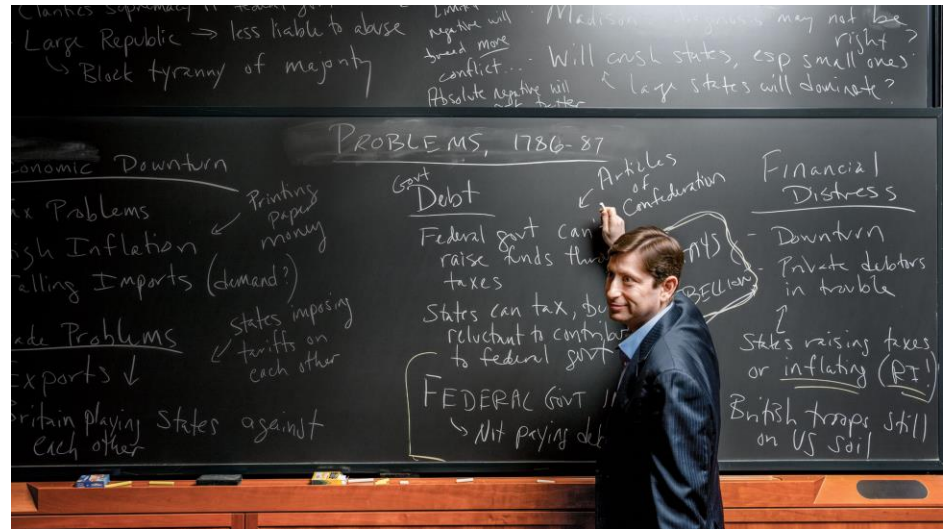 Large Republic → less liable to abuse
↳ Block tyranny of majority
negative will
breed more
conflict...
Absolute negative will
Madison diagnosis may not be
right?
Will crush states, esp small ones
large states will dominate?
PROBLEMS, 1786-87
onomic Downturn
x Problems
gh Inflation
alling Imports (demand?)
Printing
paper
money
ade Problems
xports ↓
ritain playing States against
each other
States imposing
tariffs on
each other
Govt
Debt
Federal govt can
raise funds thr
taxes
States can tax, bu
reluctant to contribu
to federal govt
FEDERAL GOVT I
↳ Not paying deb
Articles
of
Confederation
AYS
BELLION
Financial
Distress
- Downturn
- Private debtors
in trouble
States raising taxes
or inflating (RI!)
British troops still
on US soil